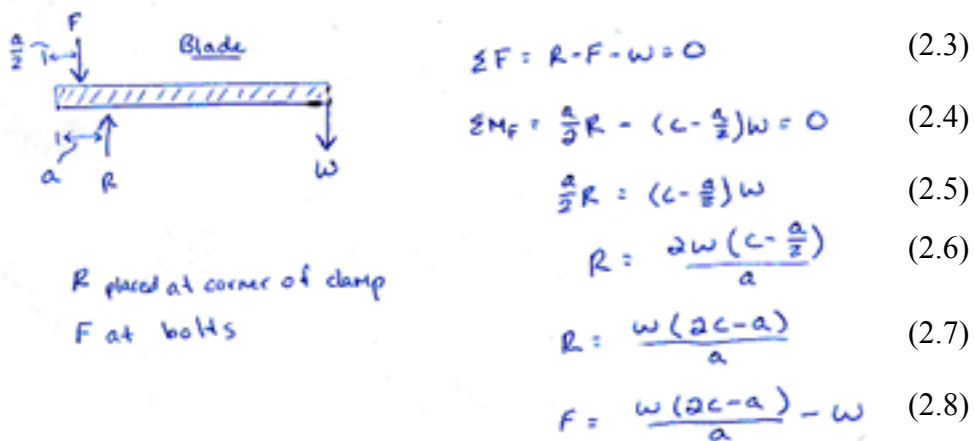 F
a/2
Blade
a
R
W
R placed at corner of clamp
F at bolts
ΣF = R - F - W = 0 (2.3)
ΣM_F = a/2 R - (c - a/2)W = 0 (2.4)
a/2 R = (c - a/2)W (2.5)
R = 2W(c - a/2)/a (2.6)
R = W(2c - a)/a (2.7)
F = W(2c - a)/a - W (2.8)